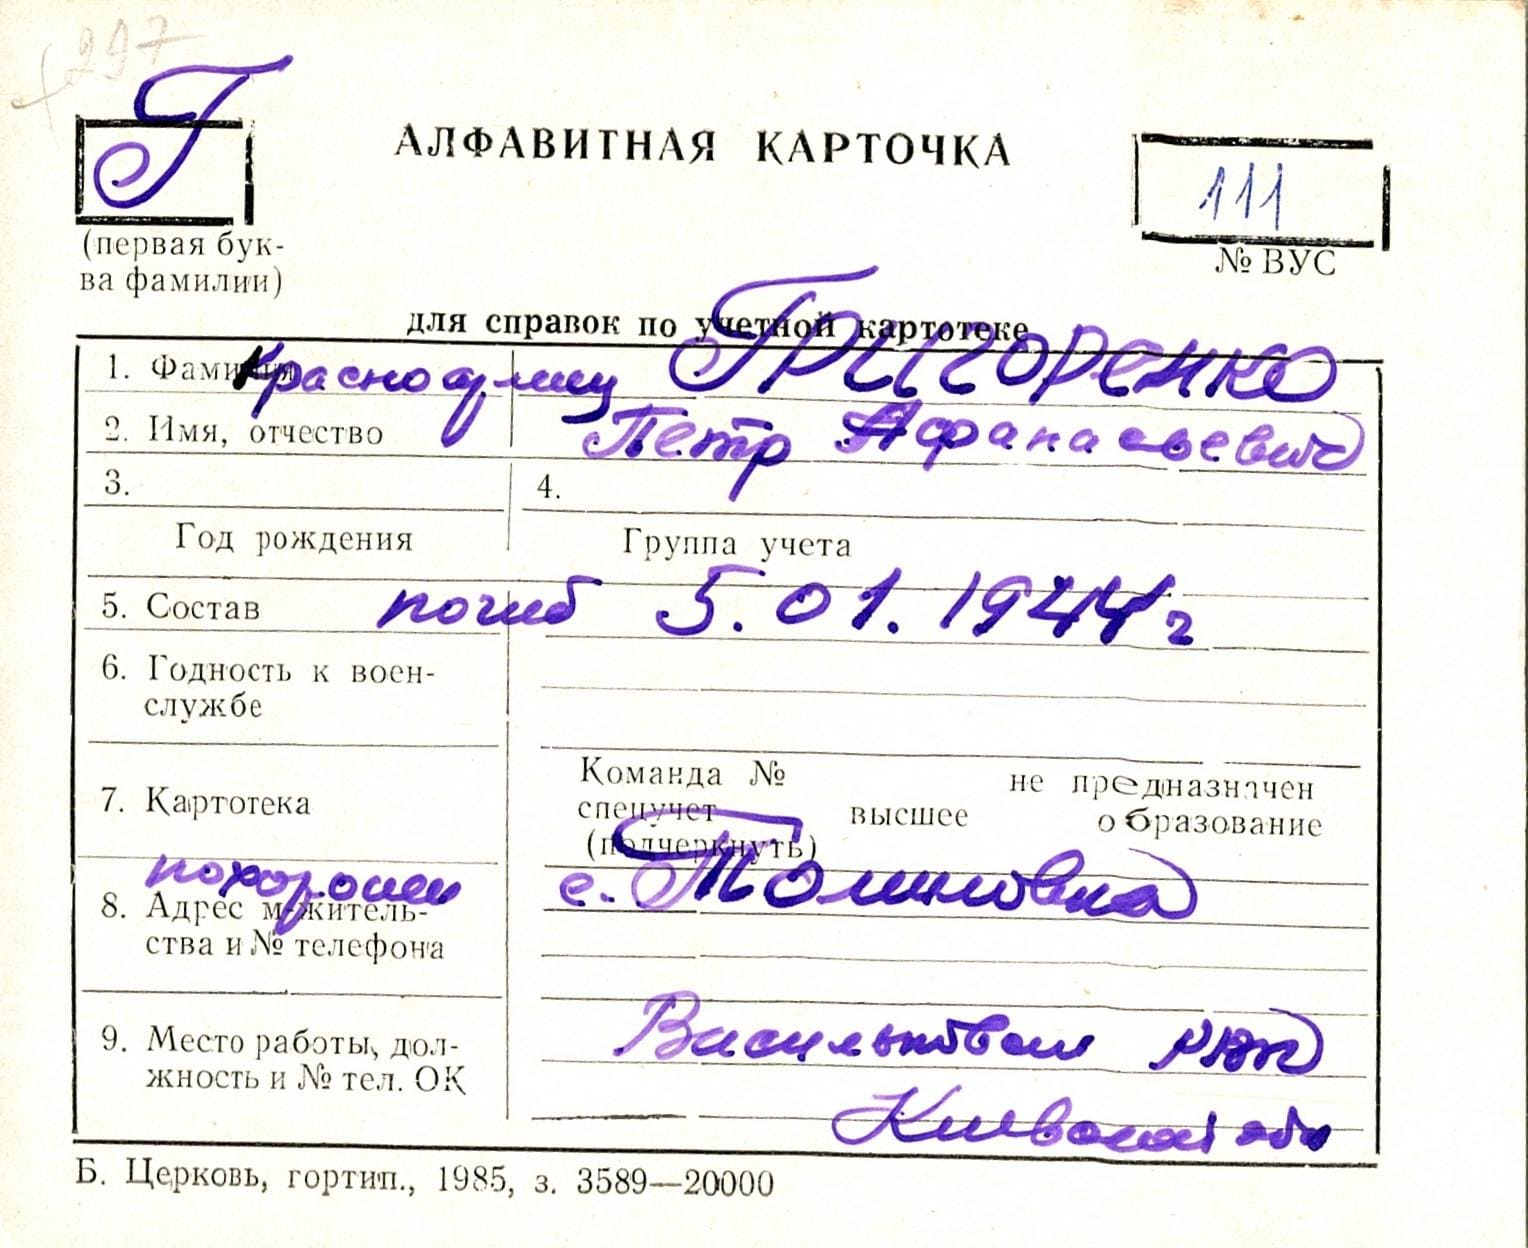 297
Г
АЛФАВИТНАЯ КАРТОЧКА
111
(первая бук-
ва фамилии)
№ ВУС
для справок по учетной картотеке
1. Фамилия Красноармеец Григоренко
2. Имя, отчество Петр Афанасьевич
3. 4.
Год рождения Группа учета
5. Состав погиб 5.01.1944 г
6. Годность к воен-
службе
7. Картотека
Команда № не предназначен
спецучет высшее образование
(подчеркнуть)
похоронен с.
8. Адрес м-житель-
ства и № телефона
9. Место работы, дол-
жность и № тел. ОК
Васильковский р-н
Киевской обл
Б. Церковь, гортип., 1985, з. 3589—20000